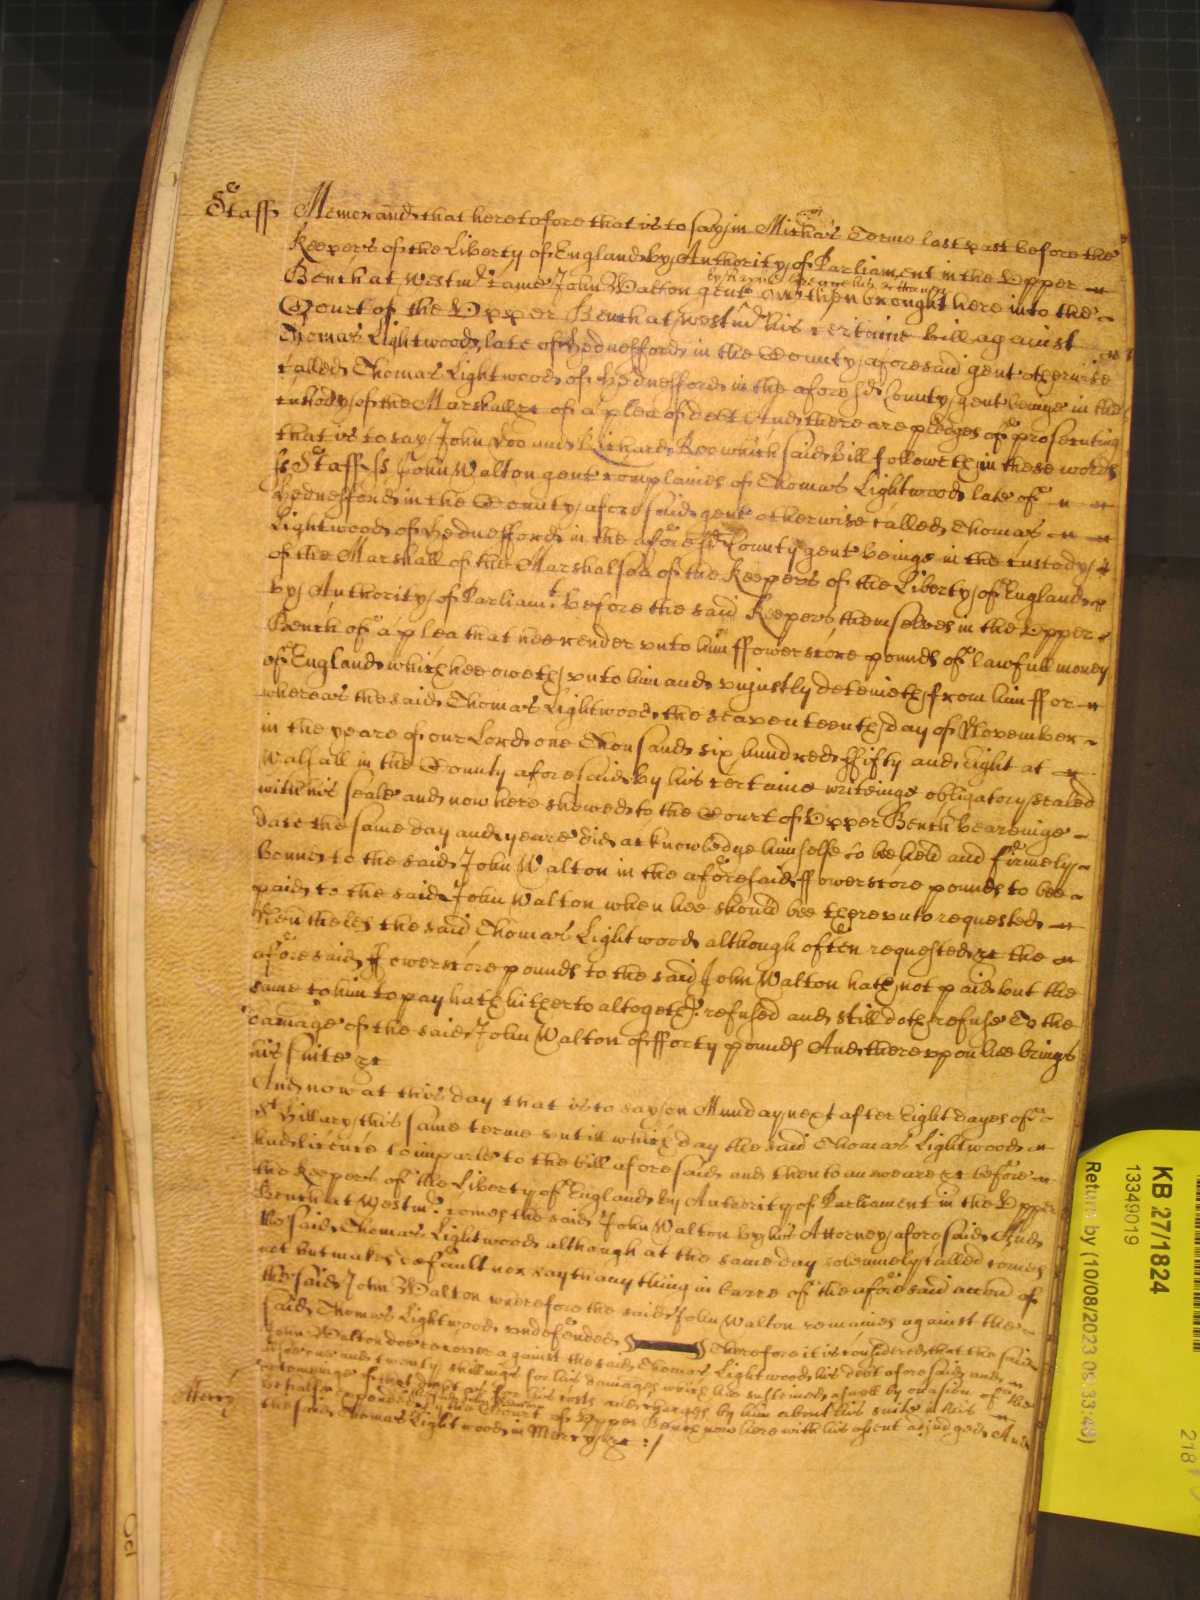 Staff Memorand that heretofore that is to say in Michas Terme last past before the
Keepers of the Liberty of England by Authority of Parliament in the Upper
by his Attorney
Bench at Westmr came John Walton gent and then brought here into the
Court of the Upper Bench at Westmr his certaine bill against
Thomas Lightwood late of Hednefford in the County aforesaid gent otherwise
called Thomas Lightwood of Hednefford in the aforesd County gent beinge in the
custody of the Marshall &c of a plea of debt And there are pledges of prosecuting
that is to say John Doo and Richard Roo which said bill followeth in these words
ss Staff ss John Walton gent complaines of Thomas Lightwood late of
Hednefford in the County aforesaid gent otherwise called Thomas
Lightwood of Hednefford in the aforesd County gent beinge in the custody
of the Marshall of the Marshalsea of the Keepers of the Liberty of England
by Authority of Parliamt before the said Keepers themselves in the Upper
Bench of a plea that hee render unto him ffowerscore pounds of lawfull money
of England which hee oweth unto him and unjustly deteineth from him ffor
whereas the said Thomas Lightwood the seaventeenth day of November
in the yeare of our Lord one Thousand six hundred ffifty and eight at
Walsall in the County aforesaid by his certaine writeinge obligatory sealed
with his seale and now here shewed to the Court of Upper Bench beareinge
date the same day and yeare did acknowledge himselfe to bee held and firmely
bound to the said John Walton in the aforesaid ffowerscore pounds to bee
paid to the said John Walton when hee should bee thereunto requested
Neuertheles the said Thomas Lightwood although often requested &c the
aforesaid ffowerscore pounds to the said John Walton hath not paid but the
same to him to pay hath hitherto altogethr refused and still doth refuse To the
damage of the said John Walton of fforty pounds And thereupon hee brings
his suite &c
And now at this day that is to say on Munday next after Eight dayes of
St Hillary this same terme untill which day the said Thomas Lightwood
had licence to imparle to the bill aforesaid and then to answeare &c before
the Keepers of the Liberty of England by Authority of Parliament in the Upper
Bench at Westmr comes the said John Walton by his Attorney aforesaid And
the said Thomas Lightwood although at the same day solemnely called comes
not but makes default nor sayth any thing in barre of the aforesaid accon of
the said John Walton wherefore the said John Walton remaines against the
said Thomas Lightwood undefended Therefore it is considered that the said
John Walton doe recover against the said Thomas Lightwood his debt aforesaid and
alsoe one and twenty shillings for his damages which hee susteined aswell by occasion of the
deteininge of that debt as for his costs and charges by him about his suite in this
behalfe expended by the Court of Upper Bench now here with his assent adjudged And
Mercy the said Thomas Lightwood in Mercy &c
KB 27/1824
13349019
Return by (10/08/2023 09:33:48)
218